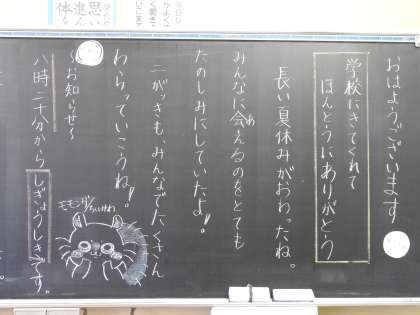 おはようございます
学校にきてくれて
ほんとうにありがとう
長い夏休みがおわったね。
みんなに会えるのをとても
あ
たのしみにしていたよ!!
二がっきも、みんなでたくさん
わらっていこうね!!
〜お知らせ〜
八時二十分からしぎょうしきです。
モモンガ/ちいかわ
思い
進ん
体を